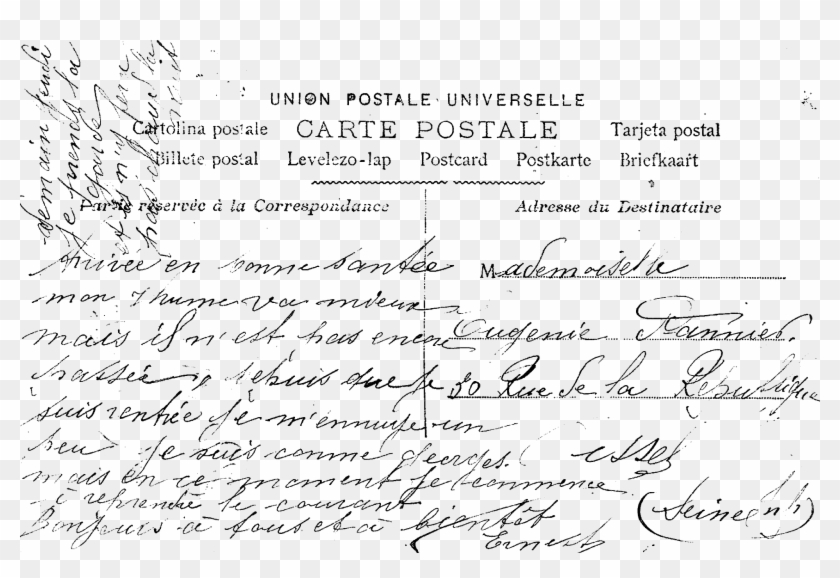 UNION POSTALE UNIVERSELLE
Cartolina postale CARTE POSTALE Tarjeta postal
Billete postal Levelezo-lap Postcard Postkarte Briefkaart
Partie réservée à la Correspondance
Adresse du Destinataire
Arrivée en bonne santée
mon rhume va mieux
mais il n'est pas encore
passée, depuis que je
suis rentrée je m'ennuye un
peu je suis comme georges.
mais en ce moment je commence
à reprendre le courant
Bonjours à tous et à bientôt
Ernest
demain jeudi
je prends la
garde
et je
pas la
nuit
Mademoiselle
Eugenie
30 Rue de la République
(Seine Inf)